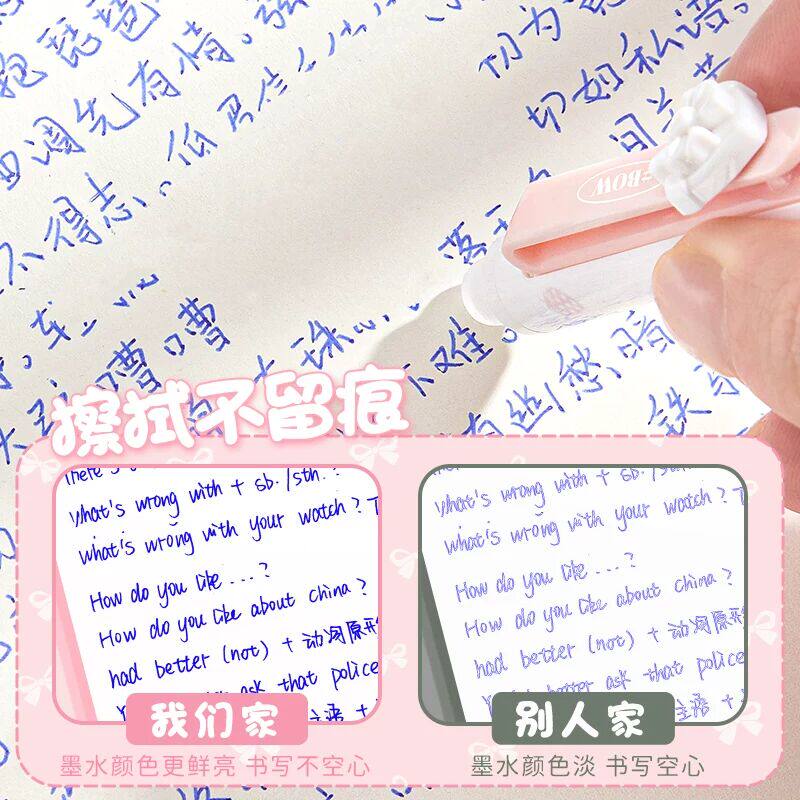 抱琵琶
调先有情。
不得志。低眉信
切如私语。
间关
BOW
嘈嘈
大珠
难。
幽愁暗
铁
擦拭不留痕
There's
what's wrong with + sb./sth.?
what's wrong with your watch? T
How do you like ...?
How do you like about china?
had better (not) + 动词原形
ask that police
主语 +
我们家
墨水颜色更鲜亮 书写不空心
what's wrong with + sb./sth.
what's wrong with your watch? T
How do you like ...?
How do you like about china?
had better (not) + 动词原形
better ask that police
主语 +
别人家
墨水颜色淡 书写空心